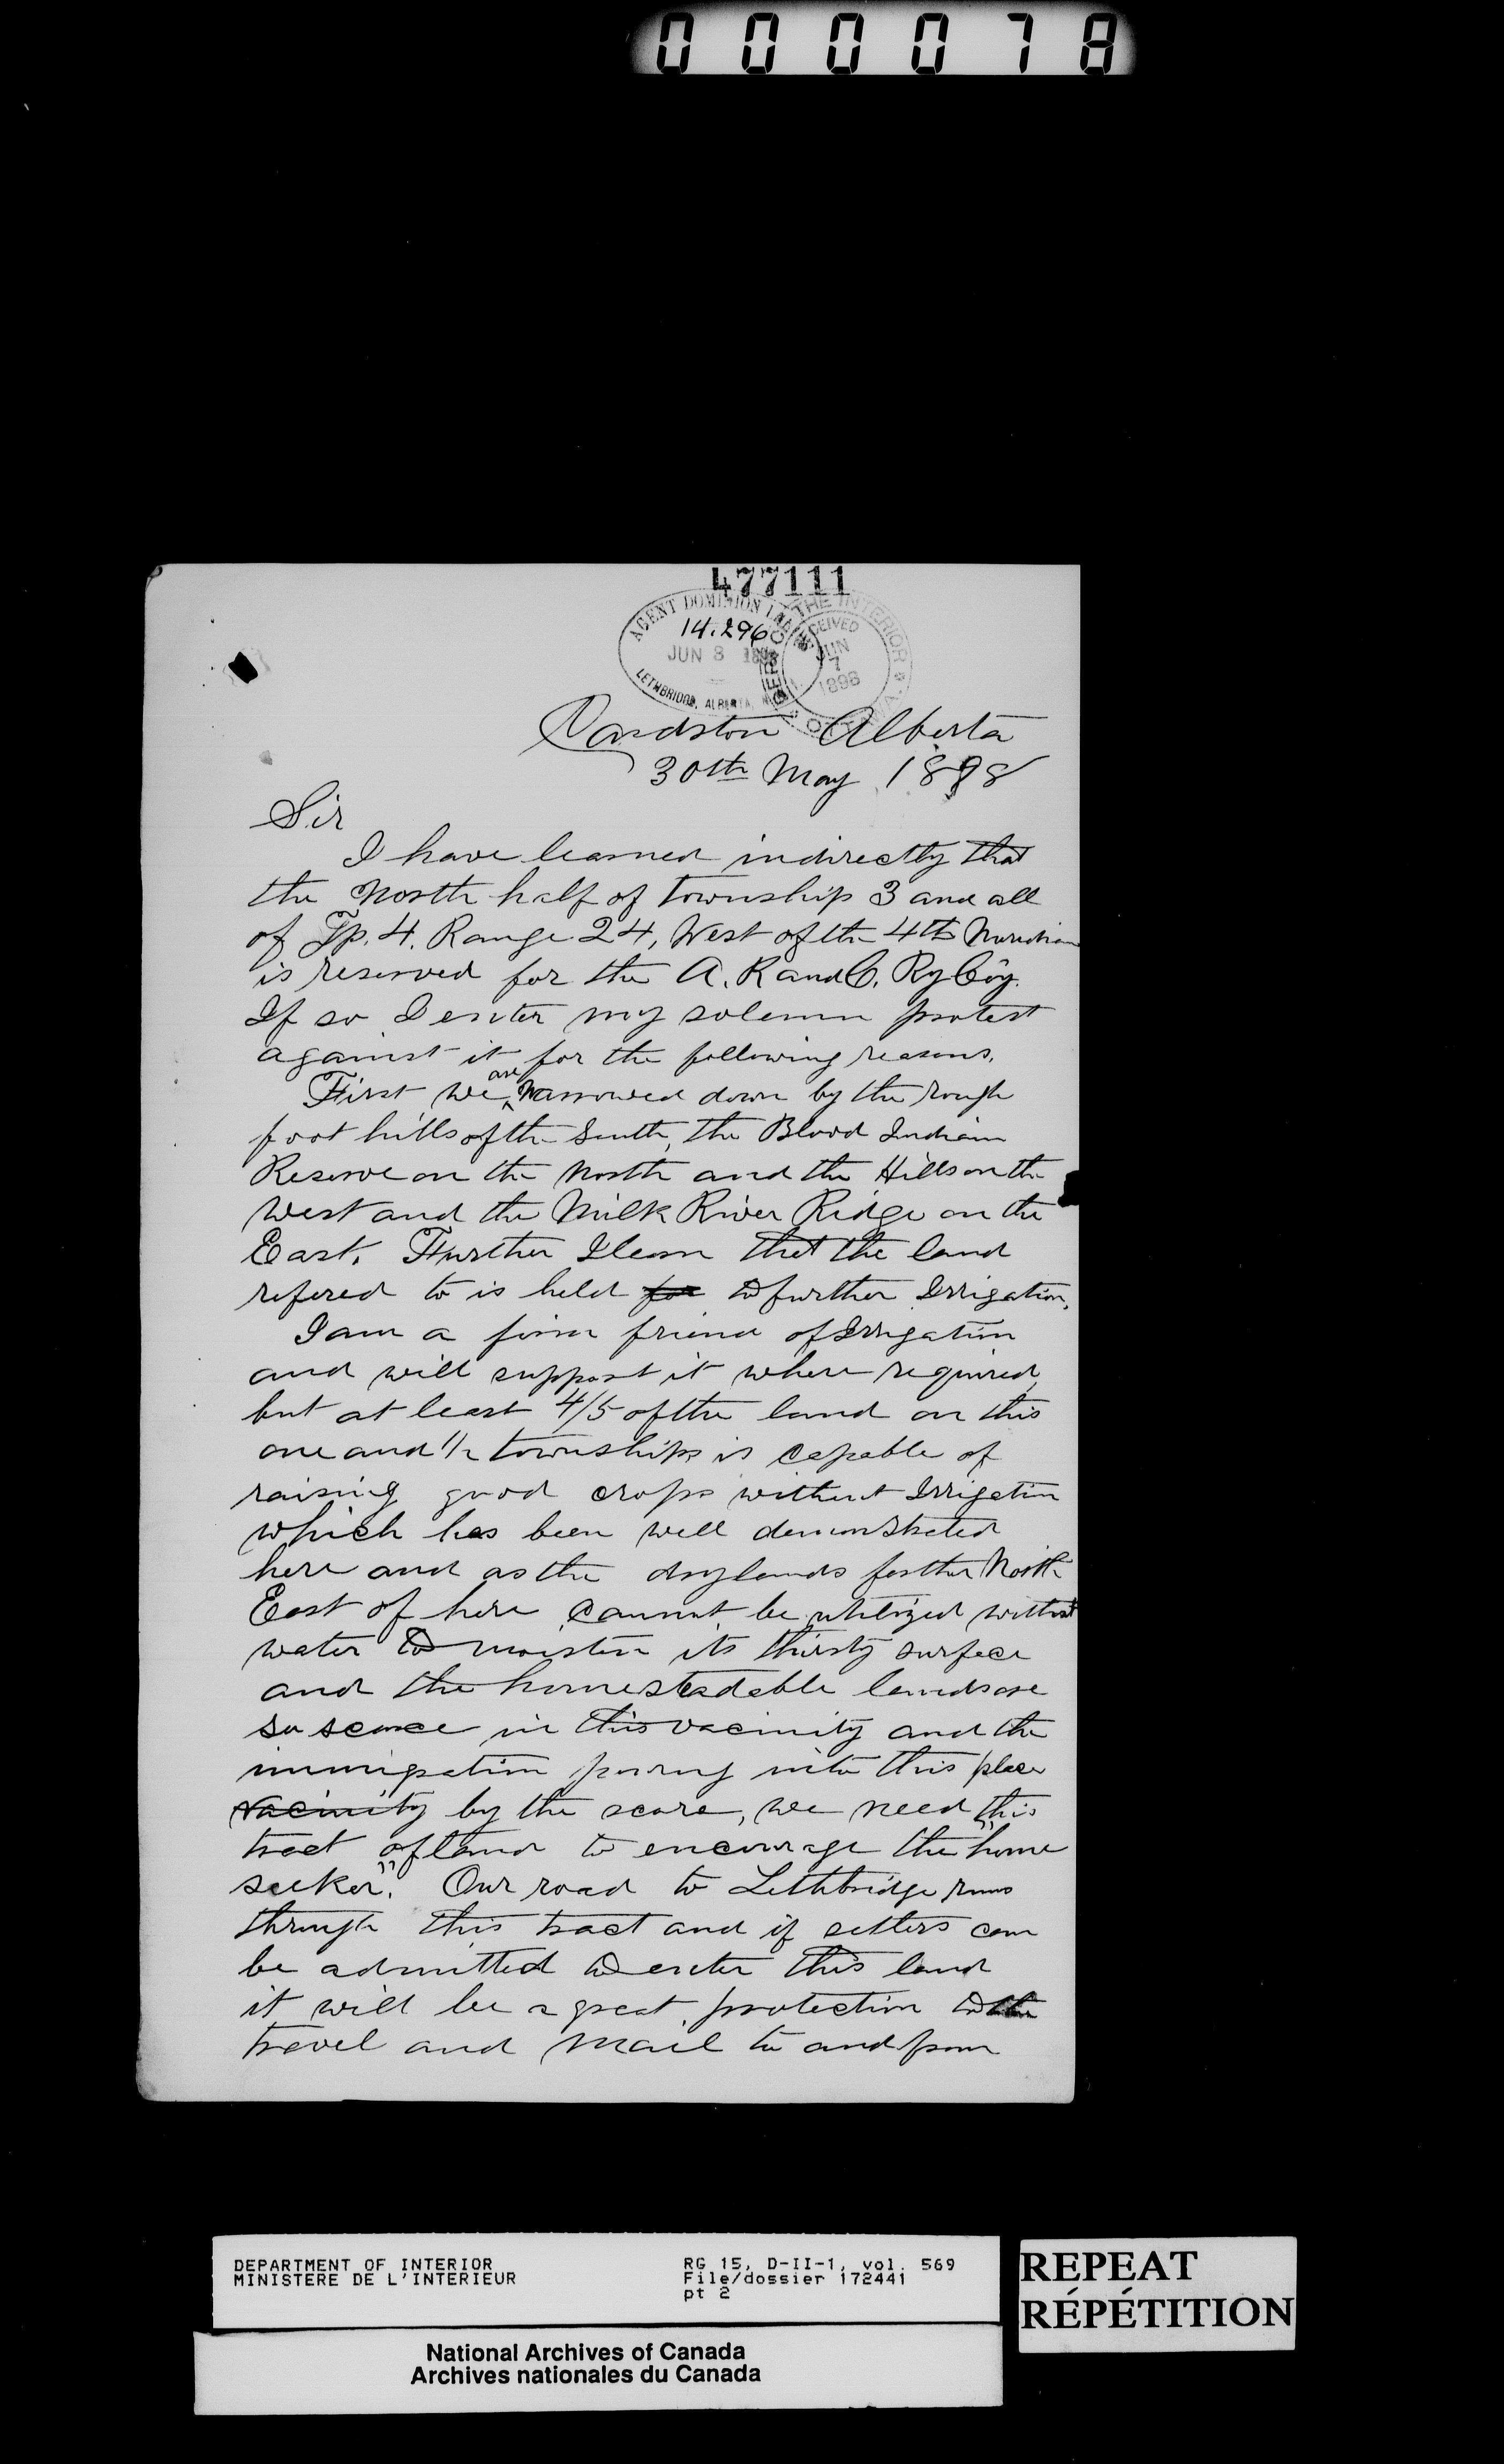 000078
477111
AGENT DOMINION LANDS
14.296
JUN 8 1898
LETHBRIDGE, ALBERTA
THE INTERIOR
RECEIVED
JUN
7
1898
Cardston Alberta
30th May 1898
Sir
I have learned indirectly that
the North half of Township 3 and all
of Tp. 4. Range 24, West of the 4th Meridian
is reserved for the A. R and C. Ry Coy.
If so I enter my solemn protest
against it for the following reasons.
First we are narrowed down by the rough
foot hills of the South, the Blood Indian
Reserve on the North and the Hills on the
West and the Milk River Ridge on the
East. Further I learn that the land
refered to is held for to further Irrigation,
I am a firm friend of Irrigation
and will support it where required,
but at least 4/5 of the land on this
one and 1/2 townships is capable of
raising good crops without Irrigation
which has been well demonstrated
here and as the dry lands farther North
East of here cannot be utilized without
water to moisten its thirsty surface
and the homesteadable lands are
so scarce in this vacinity and the
immigration pouring into this place
vacinity by the score, we need this
tract of land to encourage the "home
seeker". Our road to Lethbridge runs
through this tract and if settlers can
be admitted to enter this land
it will be a great protection to the
travel and mail to and from
DEPARTMENT OF INTERIOR
MINISTERE DE L'INTERIEUR
RG 15, D-II-1, vol. 569
File/dossier 172441
pt 2
REPEAT
RÉPÉTITION
National Archives of Canada
Archives nationales du Canada